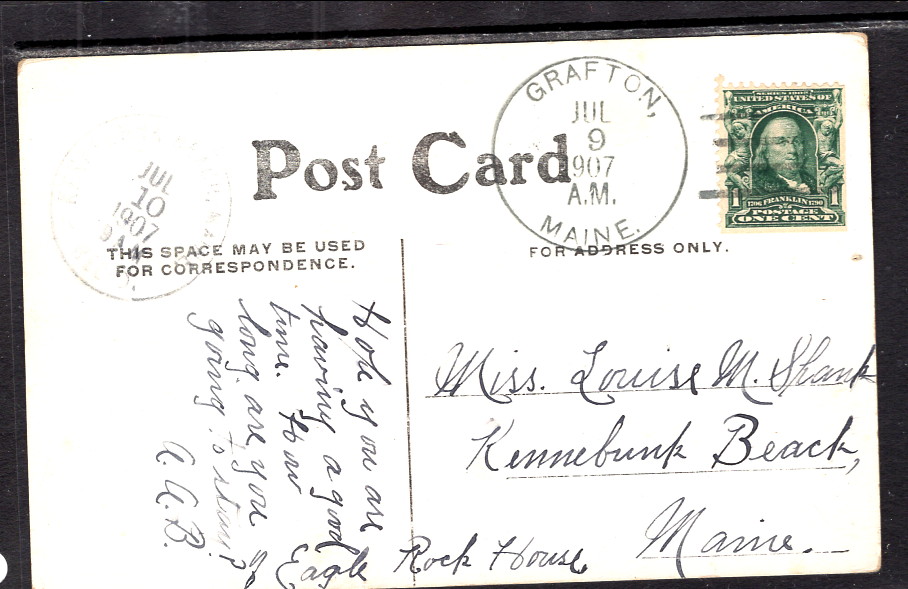 Post Card
GRAFTON,
JUL
9
1907
A.M.
MAINE.
SERIES 1902
UNITED STATES OF
AMERICA
1 1
1706 FRANKLIN 1790
POSTAGE
ONE CENT
JUL
10
1907
9 AM
THIS SPACE MAY BE USED
FOR CORRESPONDENCE.
FOR ADDRESS ONLY.
Hope you are
having a good
time. How
long are you
going to stay?
A. A. B.
Miss. Louise M. Shank
Kennebunk Beach,
Maine.
Eagle Rock House